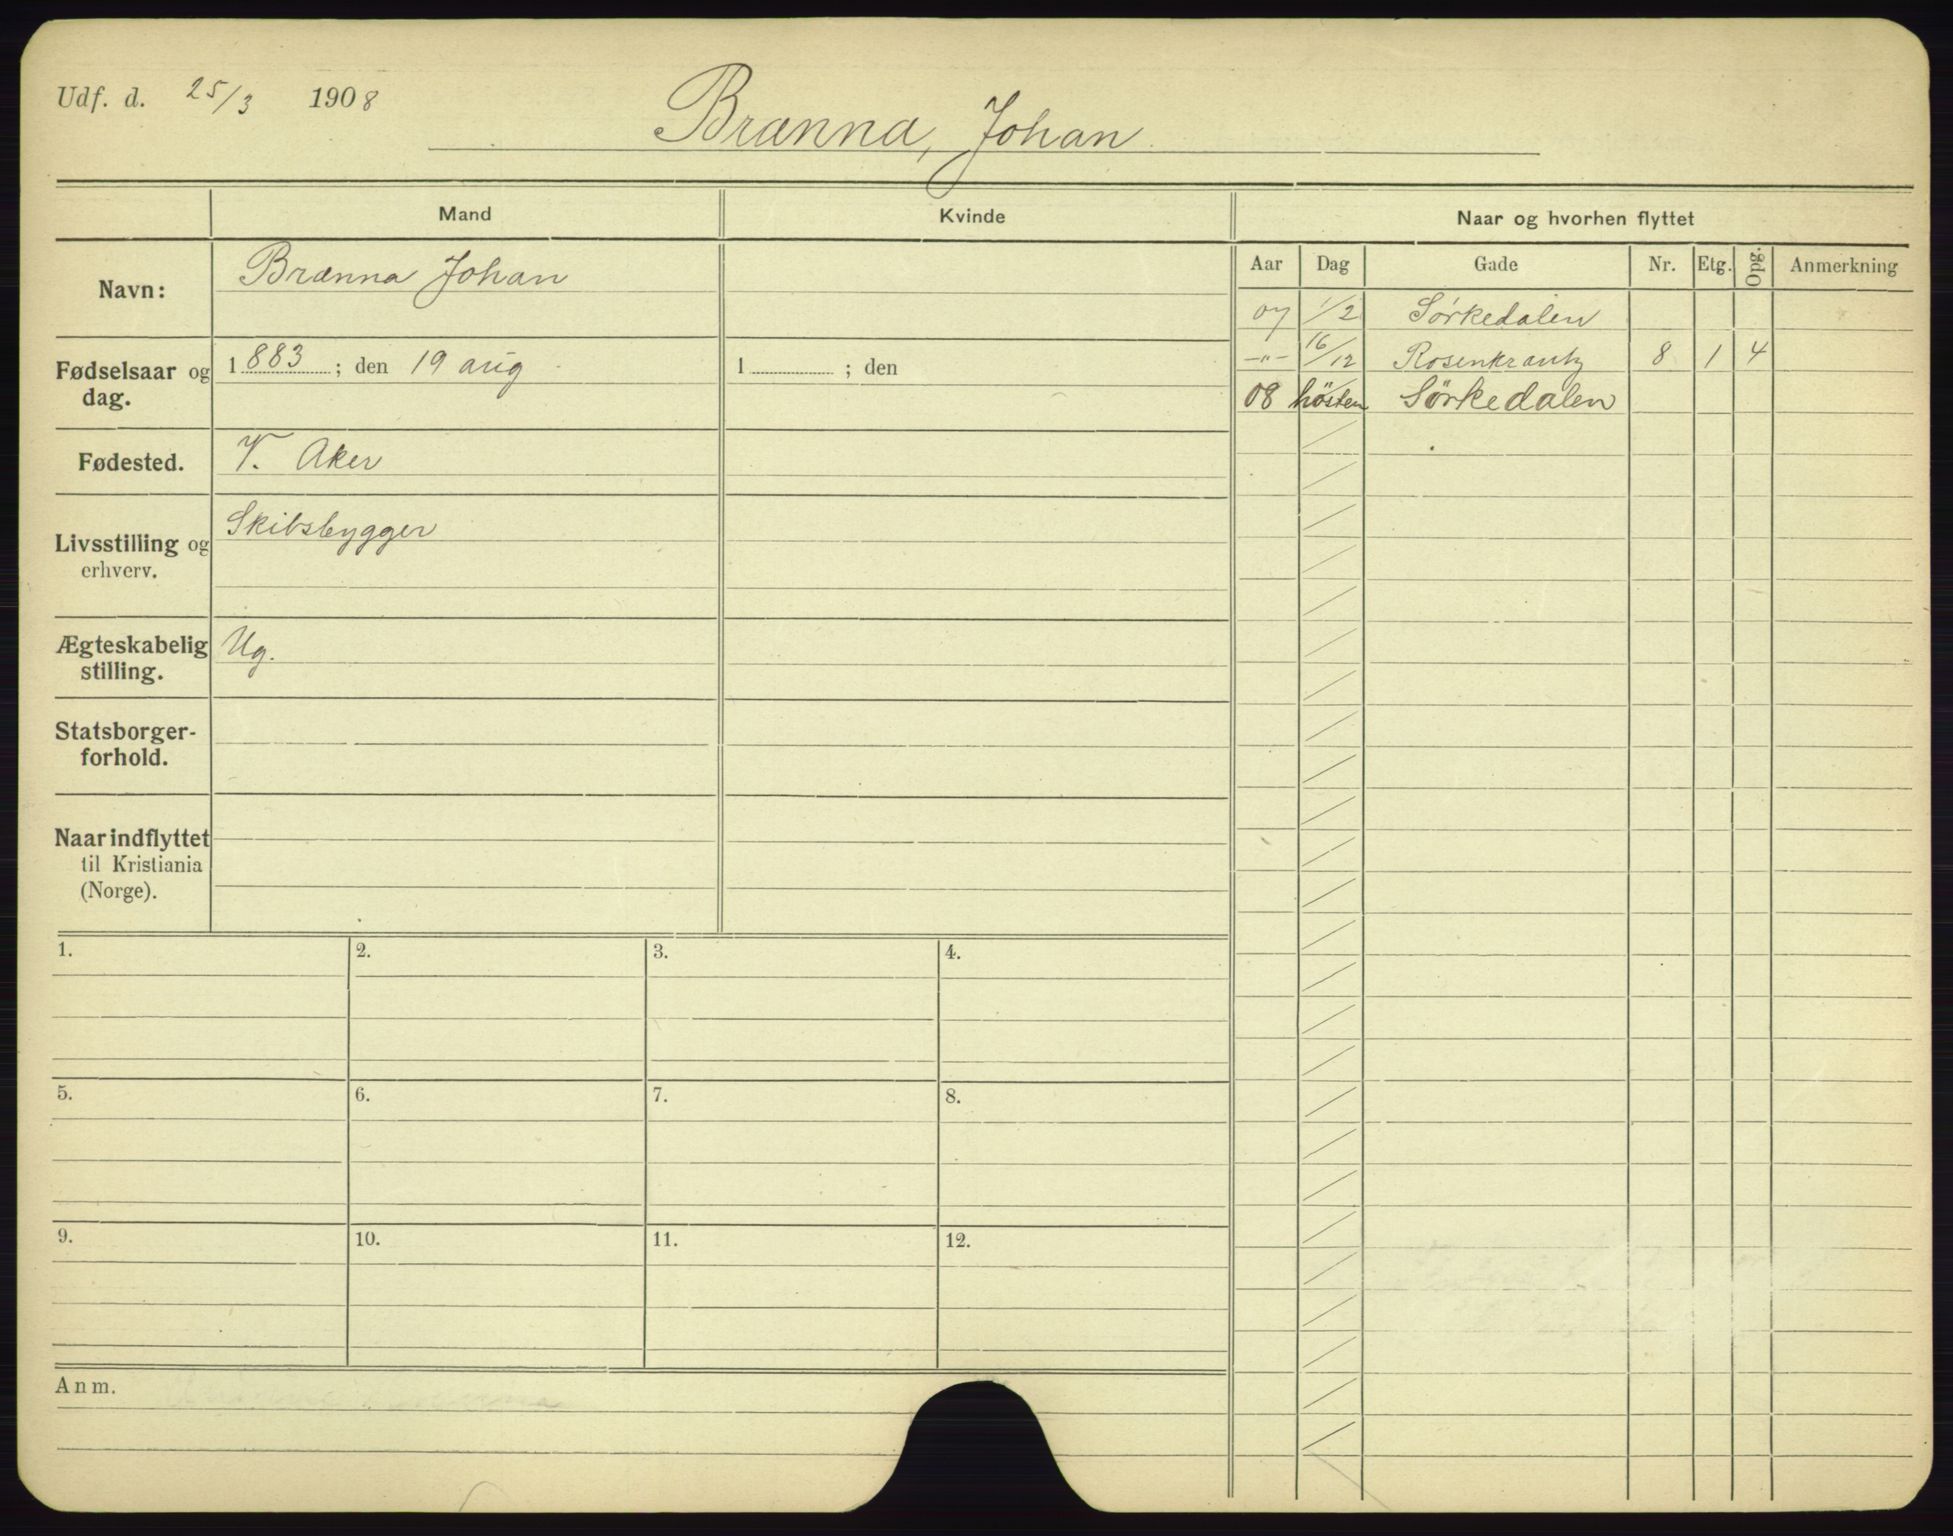 Udf. d. 25/3 1908
Brænna, Johan
Mand Kvinde Naar og hvorhen flyttet
Aar Dag Gade Nr. Etg. Opg. Anmerkning
Navn: Brænna Johan
07 1/2 Sörkedalen
Fødselsaar og dag. 1883; den 19 aug 1 ; den
—"— 16/12 Rosenkrantz 8 1 4
08 hösten Sörkedalen
Fødested. V. Aker
Livsstilling og
erhverv.
Skibsbygger
Ægteskabelig
stilling.
Ug.
Statsborger-
forhold.
Naar indflyttet
til Kristiania
(Norge).
1. 2. 3. 4.
5. 6. 7. 8.
9. 10. 11. 12.
Anm.